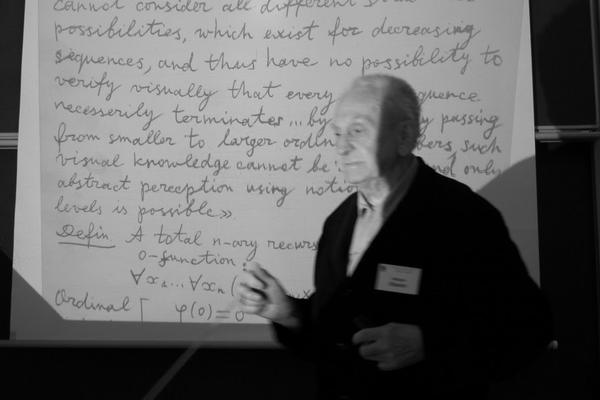 cannot consider all different
possibilities, which exist for decreasing
sequences, and thus have no possibility to
verify visually that every sequence
necesserily terminates ... by passing
from smaller to larger such
visual knowledge cannot be and only
abstract perception using
levels is possible»
Defin A total n-ary
0-function
∀x₁...∀xₙ(
Ordinal [ φ(0)=0